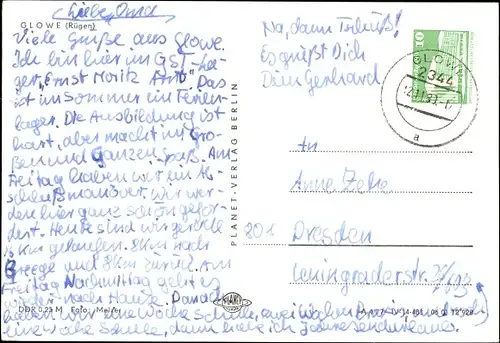 Liebe Oma
GLOWE (Rügen)
Viele Grüße aus Glowe.
Ich bin hier im GST-La-
ger "Ernst Moritz Arndt". Das
ist im Sommer ein Ferien-
lager. Die Ausbildung ist
hart, aber macht im Gro-
ßen und Ganzen Spaß. Am
Freitag haben wir ein Ab-
schlußmanöver, wir wer-
den hier ganz schön gefor-
dert. Heute sind wir
16 km gelaufen. 8km nach
Breege und 8km zurück. Am
Freitag Nachmittag geht es
wieder nach Hause. Danach
haben wir eine Woche Schule, zwei Wochen
eine Woche Schule, dann habe ich
DDR 0,25 M Foto: Melzer
PLANET-VERLAG BERLIN
Na, dann Tschüß!
Es grüßt Dich
Dein Gerhard
10
GLOWE
2344
a
An
Anne
201 Dresden
Leningraderstr.